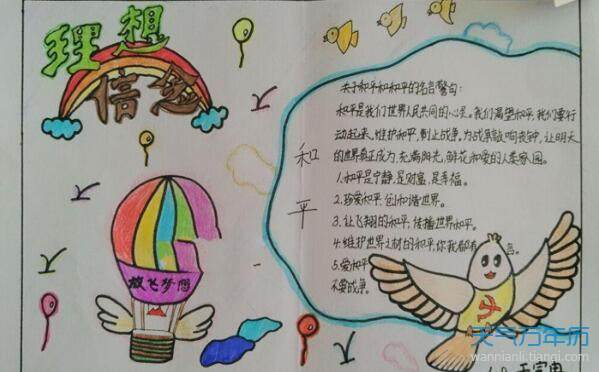 理想
信念
放飞梦想
和平
关于和平和和平的名言警句：
和平是我们世界人民共同的心灵。我们渴望和平，我们要行
动起来，维护和平，制止战争。为战争敲响丧钟，让明天
的世界真正成为，充满阳光，鲜花和爱的人类家园。
1.和平是宁静，是财富，是幸福。
2.珍爱和平，创和谐世界。
3.让飞翔的和平，传播世界和平。
4.维护世界之材的和平，你我都有
5.爱和平
不要战争。
天气万年历
wannianli.tianqi.com